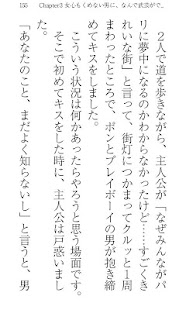 155　Chapter3 女心もくめない男に、なんで武芸がで…
　２人で道を歩きながら、主人公が「なぜみんながパ
リに夢中になるかわからなかったけど…すごくき
れいな街」と言って、街灯につかまってクルッと１周
まわったところで、ポンとプレイボーイの男が抱き締
めてキスをしました。
　こういう状況は何かあったらやろうと思う場面です。
　そこで初めてキスをした時に、主人公は戸惑いまし
た。
「あなたのこと、まだよく知らないし」と言うと、男